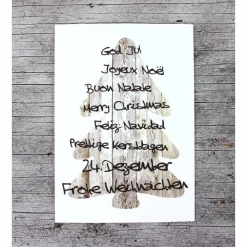 God Jul
Joyeux Noël
Buon Natale
Merry Christmas
Feliz Navidad
Prettige Kerstdagen
24. Dezember
Frohe Weihnachten